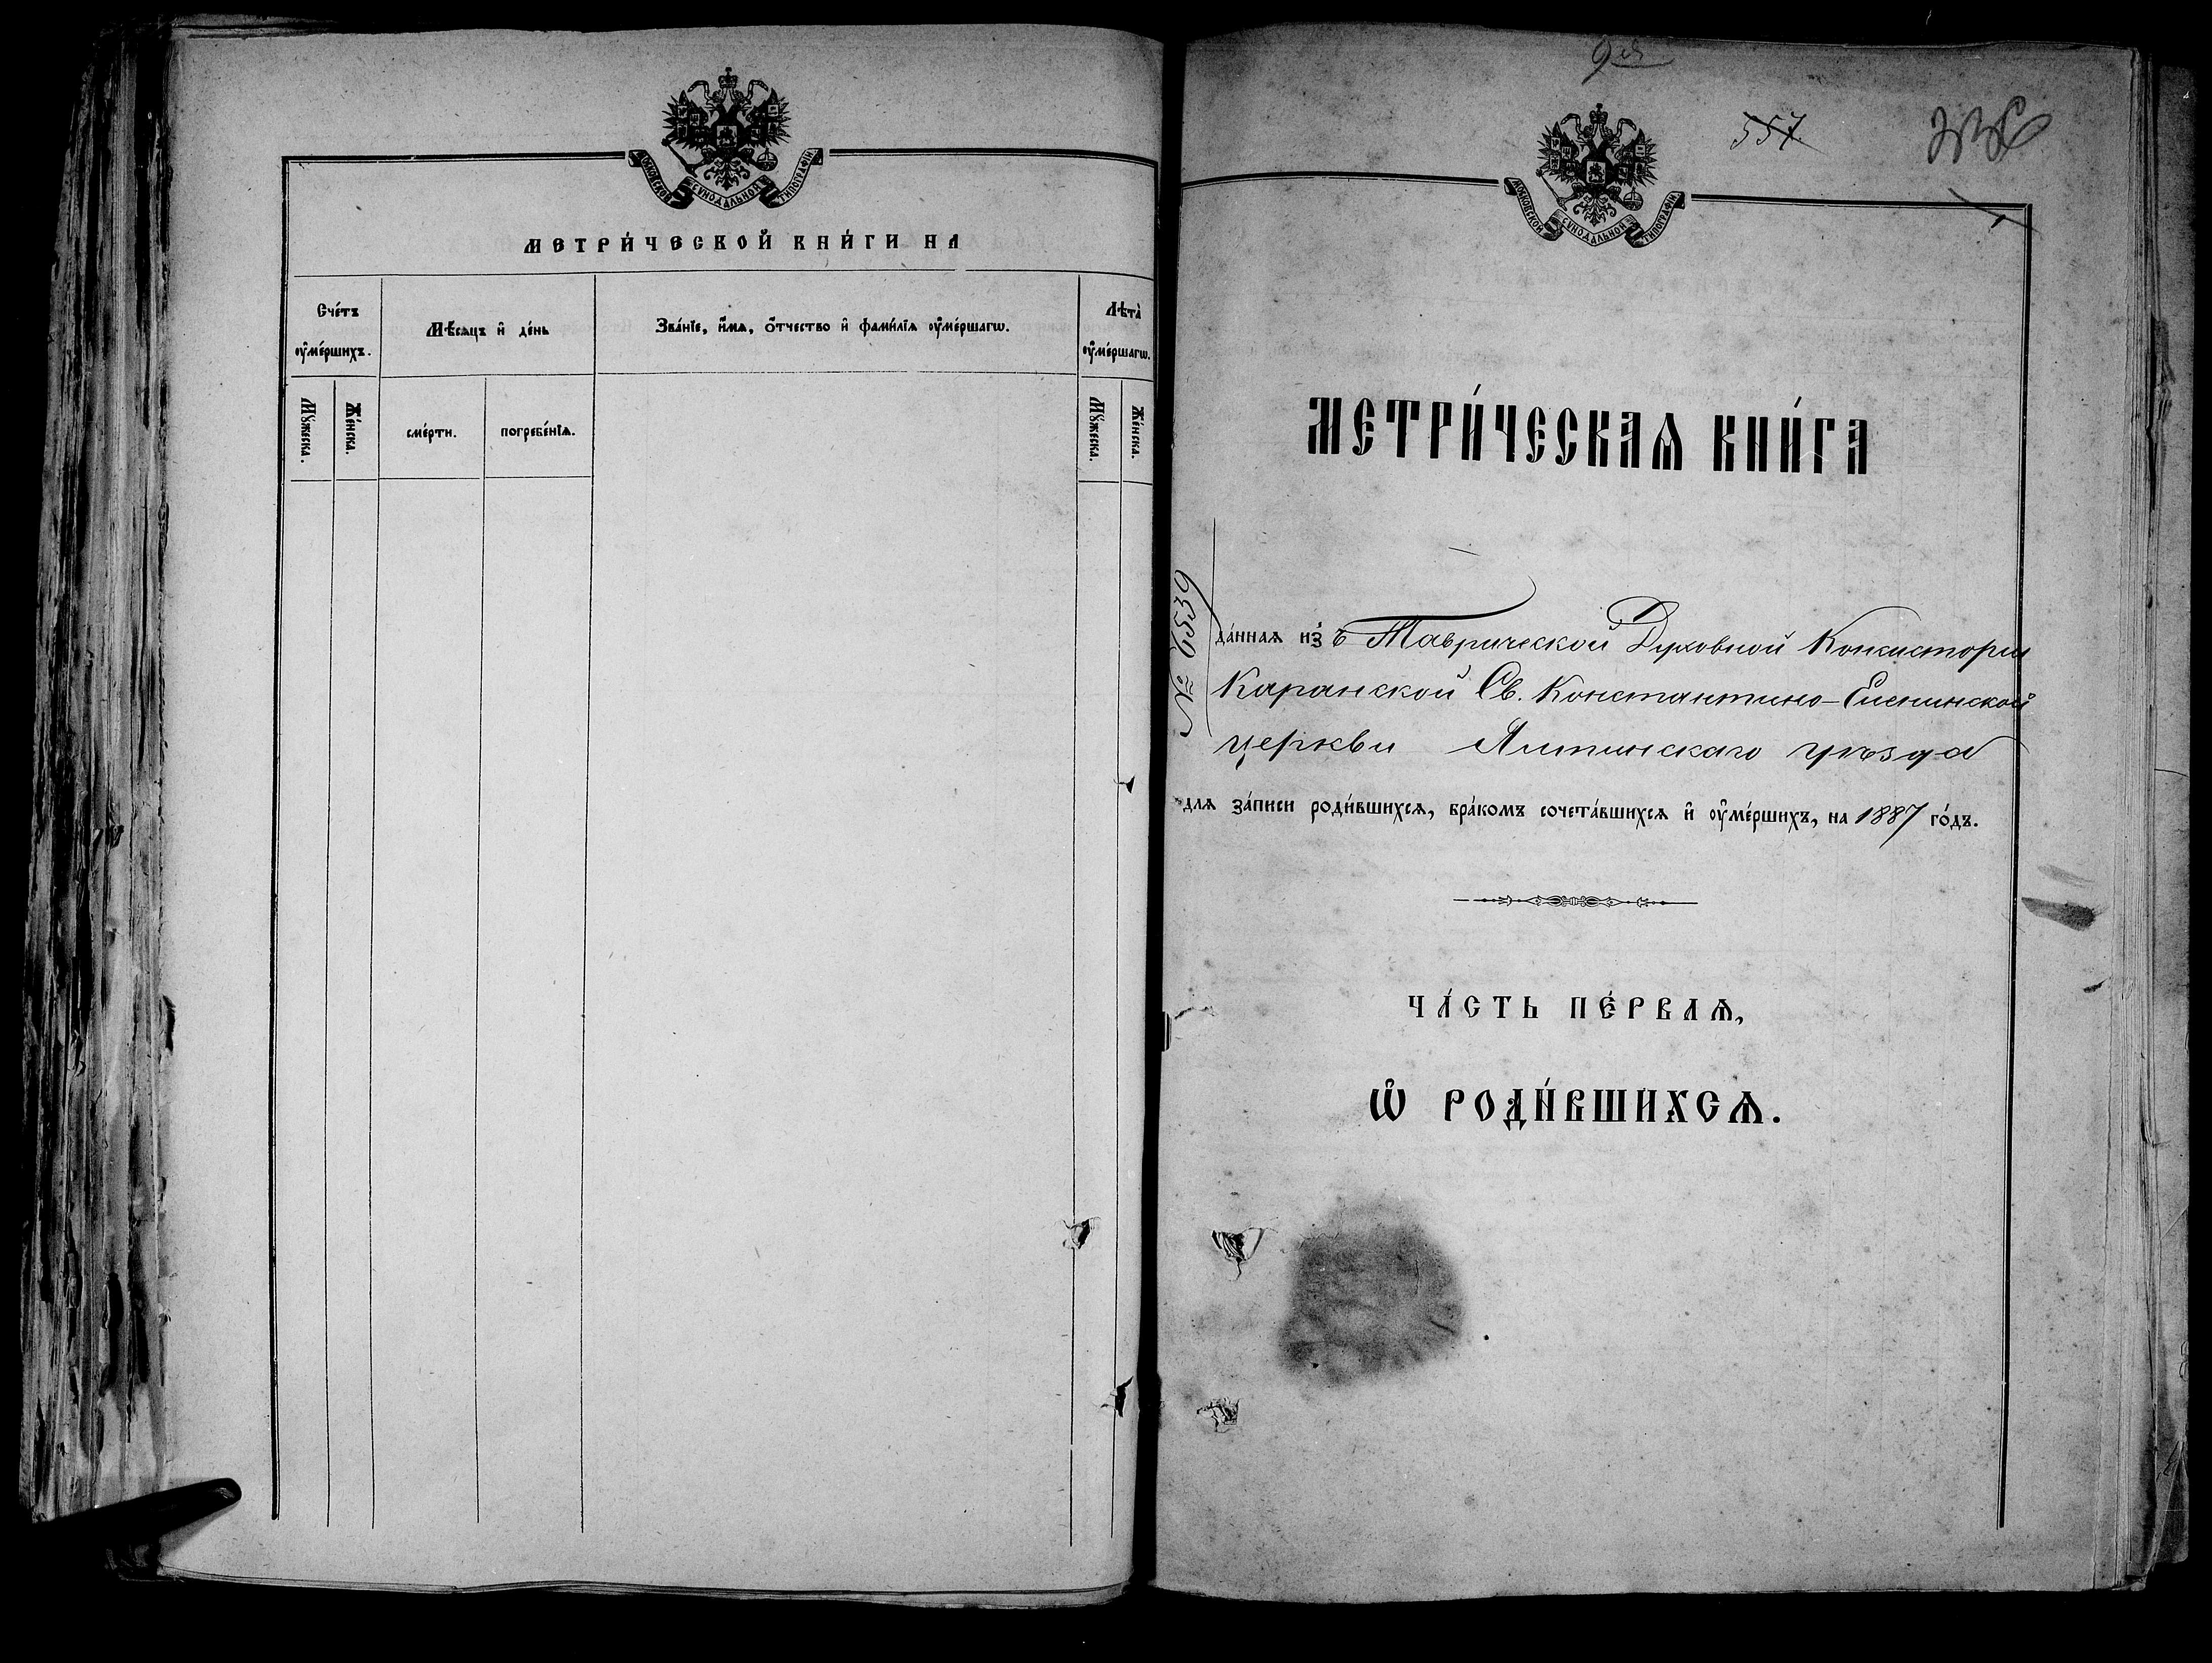 МОСКОВСКОЙ СѴНОДАЛЬНОЙ ТИПОГРАФІИ
МЕТРИ́ЧЕСКОЙ КНИ́ГИ НА
Сче́тъ ᲂу҆ме́ршихъ.
Мѣ́сяцъ и҆ де́нь
Зва́нїе, и҆́мѧ, ѻ҆́тчество и҆ фами́лїѧ ᲂу҆ме́ршагѡ.
Лѣта̀ ᲂу҆ме́ршагѡ.
Мꙋ́жеска.
Же́нска.
сме́рти.
погребе́нїѧ.
Мꙋ́жеска.
Же́нска.
9
557
МОСКОВСКОЙ СѴНОДАЛЬНОЙ ТИПОГРАФІИ
МЕТРИ́ЧЕСКАѦ КНИ́ГА
№ 6539
да́ннаѧ и҆з̾ ъ Таврической Духовной Консисторіи
Каранской Св. Константино-Еленинской
церкви Ялтинскаго уѣзда
длѧ за́писи роди́вшихсѧ, бра́комъ сочета́вшихсѧ и҆ ᲂу҆ме́ршихъ, на 1887 го́дъ.
ЧА́СТЬ ПЕ́РВАѦ,
Ѽ РОДИ́ВШИХСѦ.